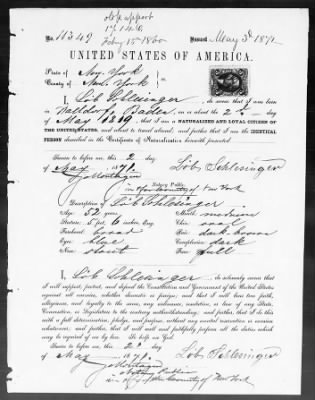 old passport
No. 11349 Feby 15th 1860 Issued May 3d 1871
UNITED STATES OF AMERICA.
State of New York
County of New York
I, Löb Schlesinger, do swear that I was born
in Walldorf, Baden, on or about the 2nd day
of May 1819; that I am a NATURALIZED AND LOYAL CITIZEN OF
THE UNITED STATES, and about to travel abroad; and further that I am the IDENTICAL
PERSON described in the Certificate of Naturalization herewith presented.
Sworn to before me this 2 day
of May 1871. Löb Schlesinger
Notary Public
in & for County of New York
Description of Löb Schlesinger
Age: 52 years Mouth: medium
Stature: 5 feet 6 inches Eng. Chin: oval
Forehead: broad Hair: dark brown
Eyes: blue Complexion: dark
Nose: stout Face: full
I, Löb Schlesinger, do solemnly swear that
I will support, protect, and defend the Constitution and Government of the United States
against all enemies, whether domestic or foreign; and that I will bear true faith,
allegiance, and loyalty to the same, any ordinance, resolution, or law of any State,
Convention, or Legislation to the contrary notwithstanding; and further, that I do this
with a full determination, pledge, and purpose, without any mental reservation or evasion
whatsoever; and further, that I will well and faithfully perform all the duties which
may be required of me by law. So help me God.
Sworn to before me this 2nd day
of May 1871. Löb Schlesinger
Notary Public
in & for County of New York